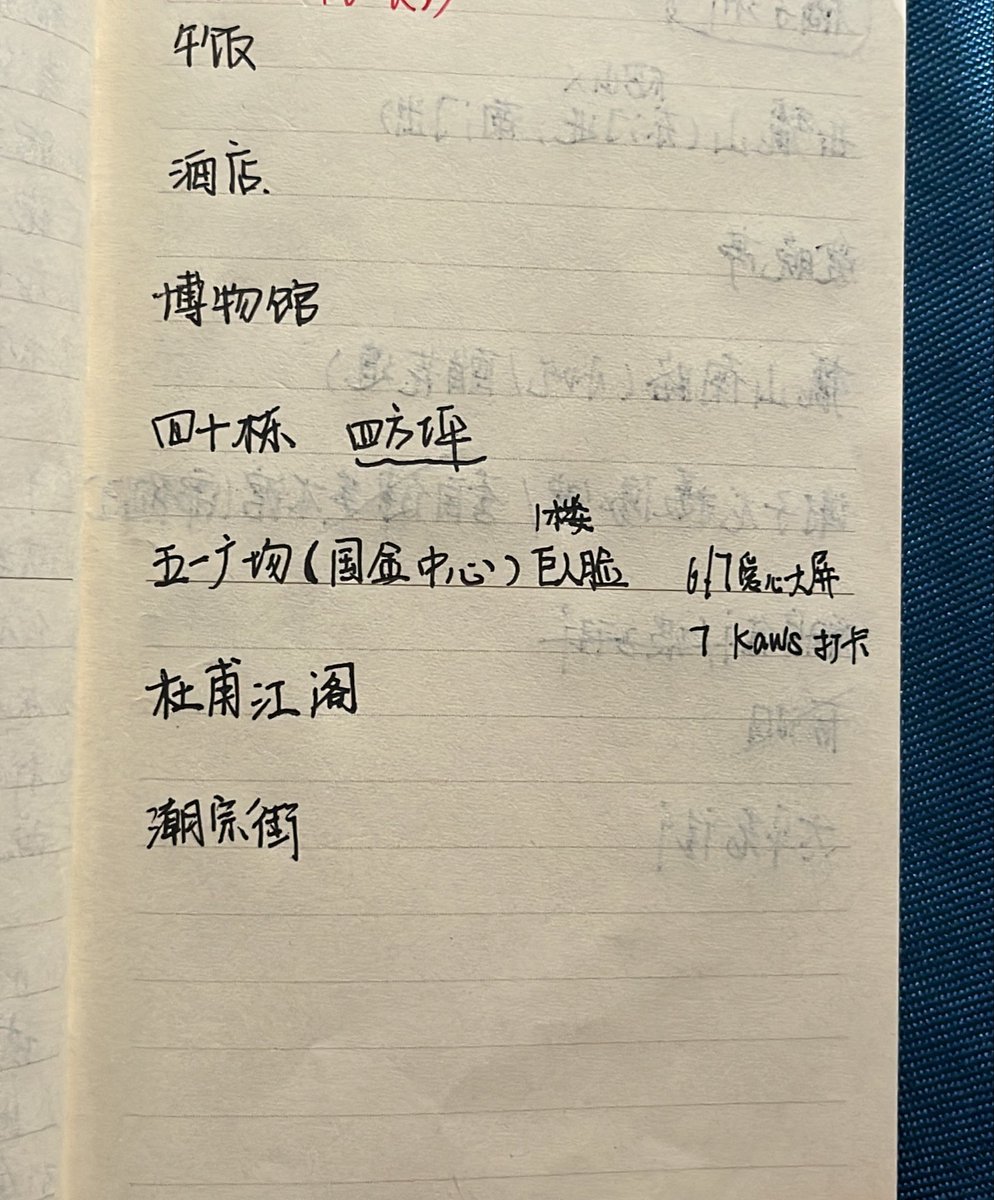 午饭
酒店.
博物馆
四十栋 四方坪
1楼
五一广场(国金中心)巨人脸 6/7爱心大屏
7 Kaws 打卡
杜甫江阁
潮宗街